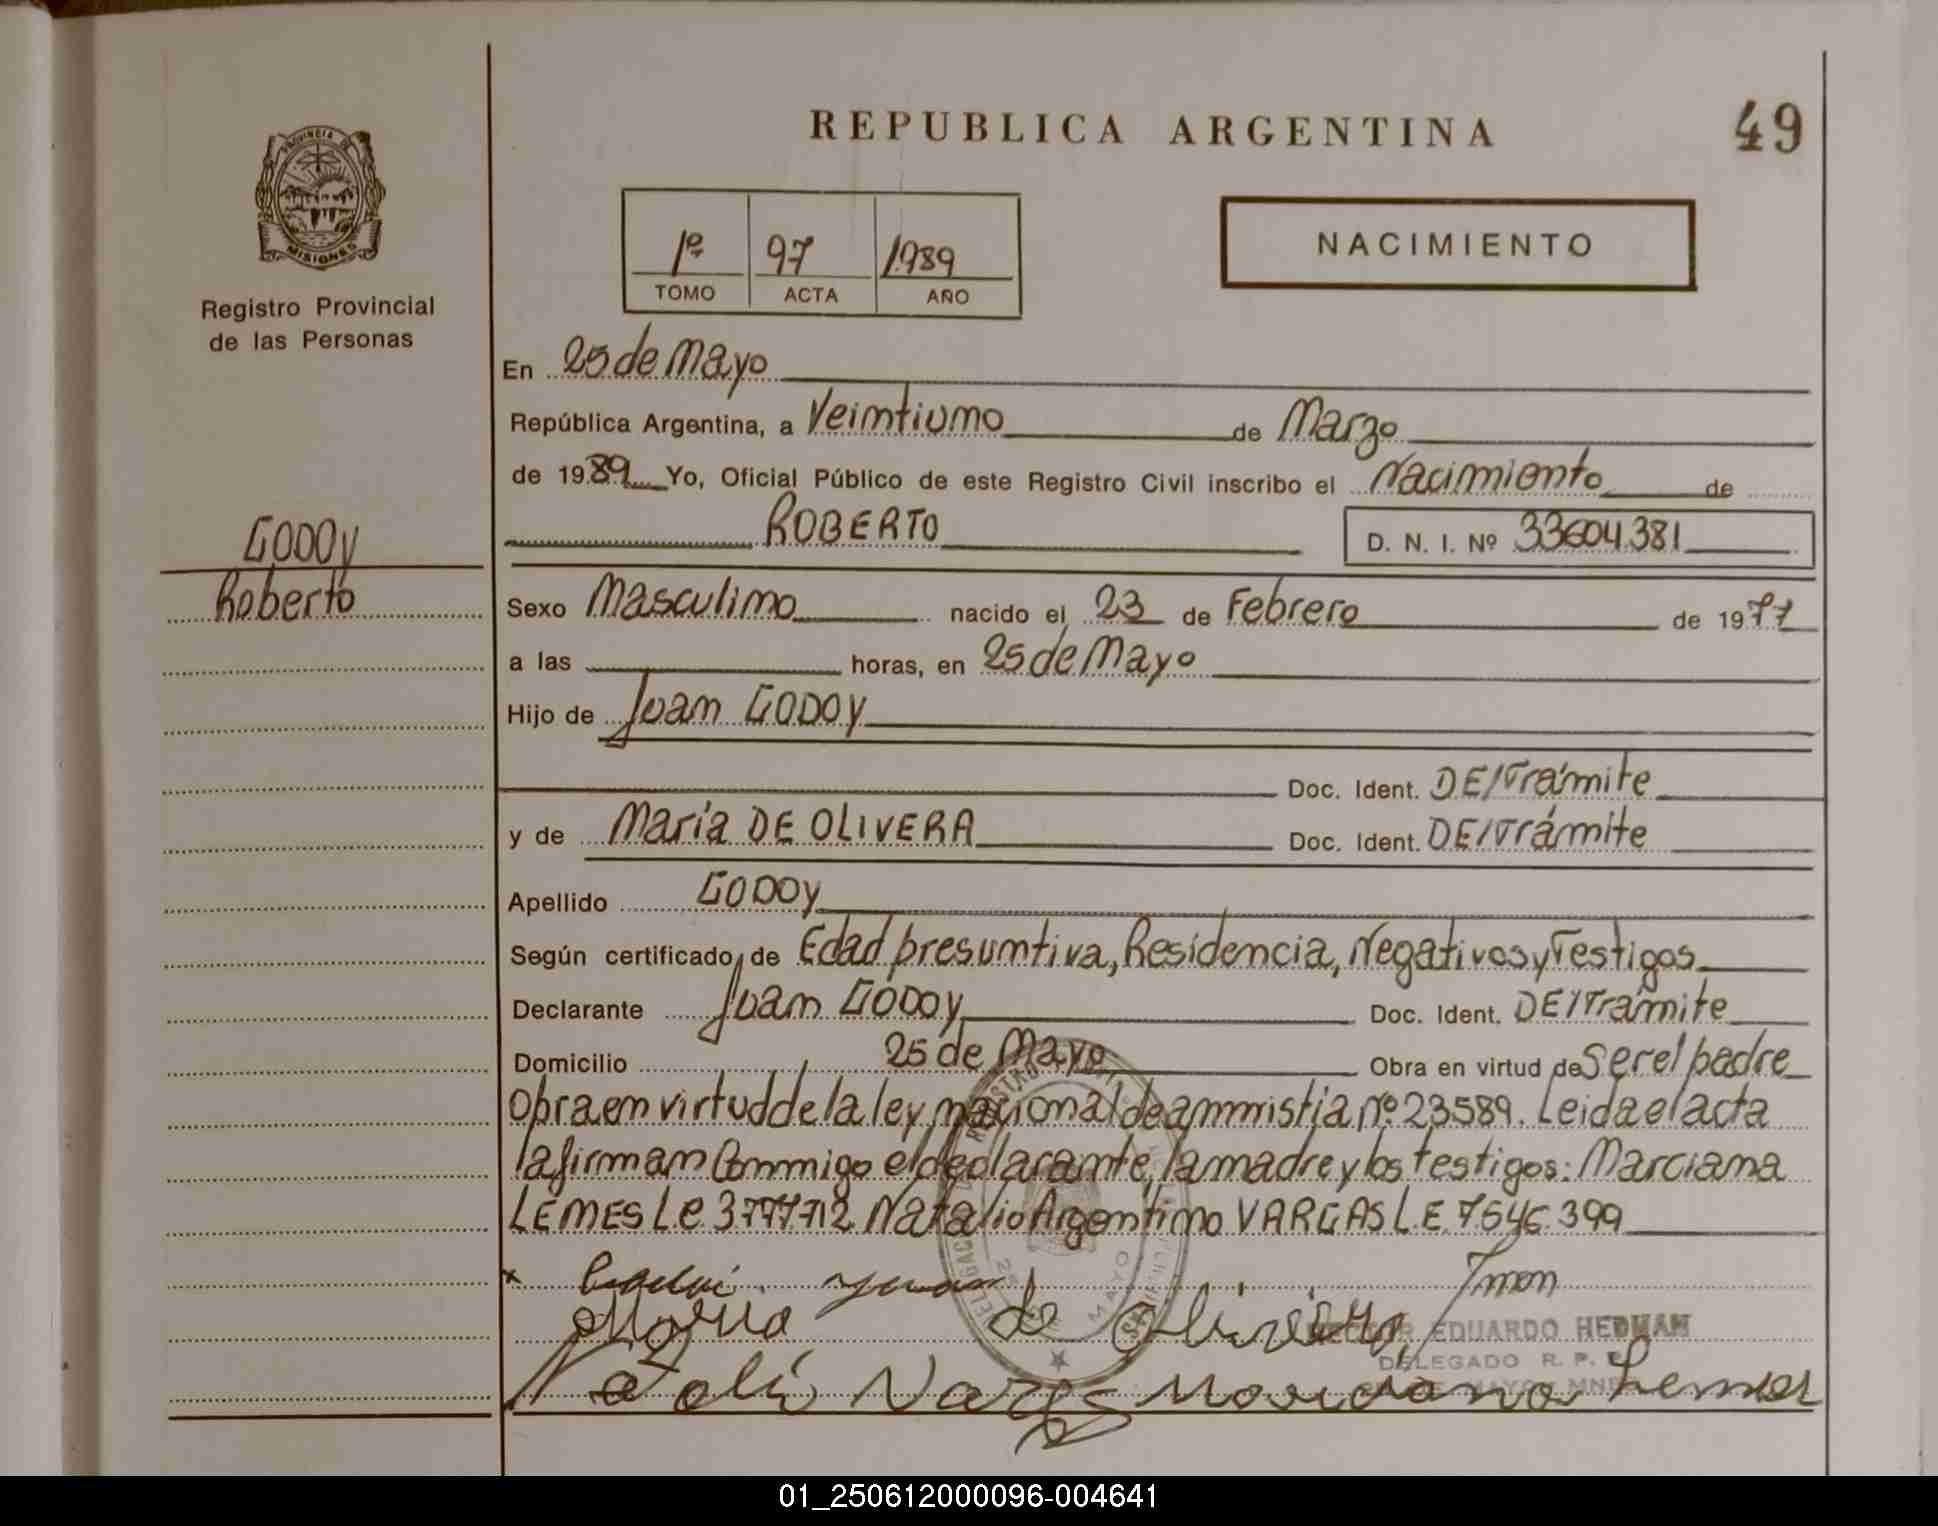 REPUBLICA ARGENTINA
49
PROVINCIA DE
MISIONES
Registro Provincial
de las Personas
1º 97 1989
TOMO ACTA AÑO
NACIMIENTO
En 25 de Mayo
República Argentina, a Veintiuno de Marzo
de 1989 Yo, Oficial Público de este Registro Civil inscribo el Nacimiento de
ROBERTO D. N. I. Nº 33604.381
GODOy
Roberto
Sexo Masculino nacido el 23 de Febrero de 1977
a las horas, en 25 de Mayo
Hijo de Juan GODOy
Doc. Ident. DE/Trámite
y de María DE OLIVERA Doc. Ident. DE/Trámite
Apellido GODOy
Según certificado de Edad presumtiva, Residencia, Negativos y Testigos
Declarante Juan GODOy Doc. Ident. DE/Trámite
Domicilio 25 de Mayo Obra en virtud de Ser el padre
Obra en virtud de la ley nacional de ammistia nº 23589. Leida el acta
la firman Conmigo el declarante, la madre y los testigos: Marciana
LEMES L.e. 3.777.712 Natalio Argentino VARGAS L.E. 7.546.399
Juan
Maria de Olivera
EDUARDO HEDMAN
DELEGADO R. P.
Natali Vargas Marciana Lemes
01_250612000096-004641